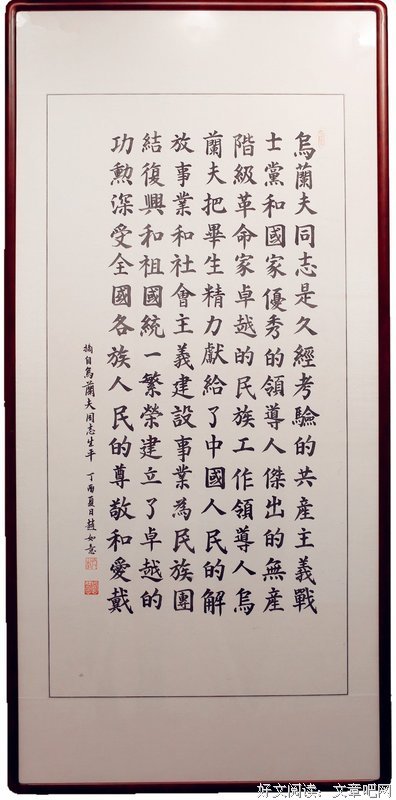 烏蘭夫同志是久經考驗的共産主義戰
士黨和國家優秀的領導人傑出的無産
階級革命家卓越的民族工作領導人烏
蘭夫把畢生精力獻給了中國人民的解
放事業和社會主義建設事業為民族團
結復興和祖國統一繁榮建立了卓越的
功勲深受全國各族人民的尊敬和愛戴
摘自烏蘭夫同志生平 丁酉夏日趙如意
好文阅读：文章吧网